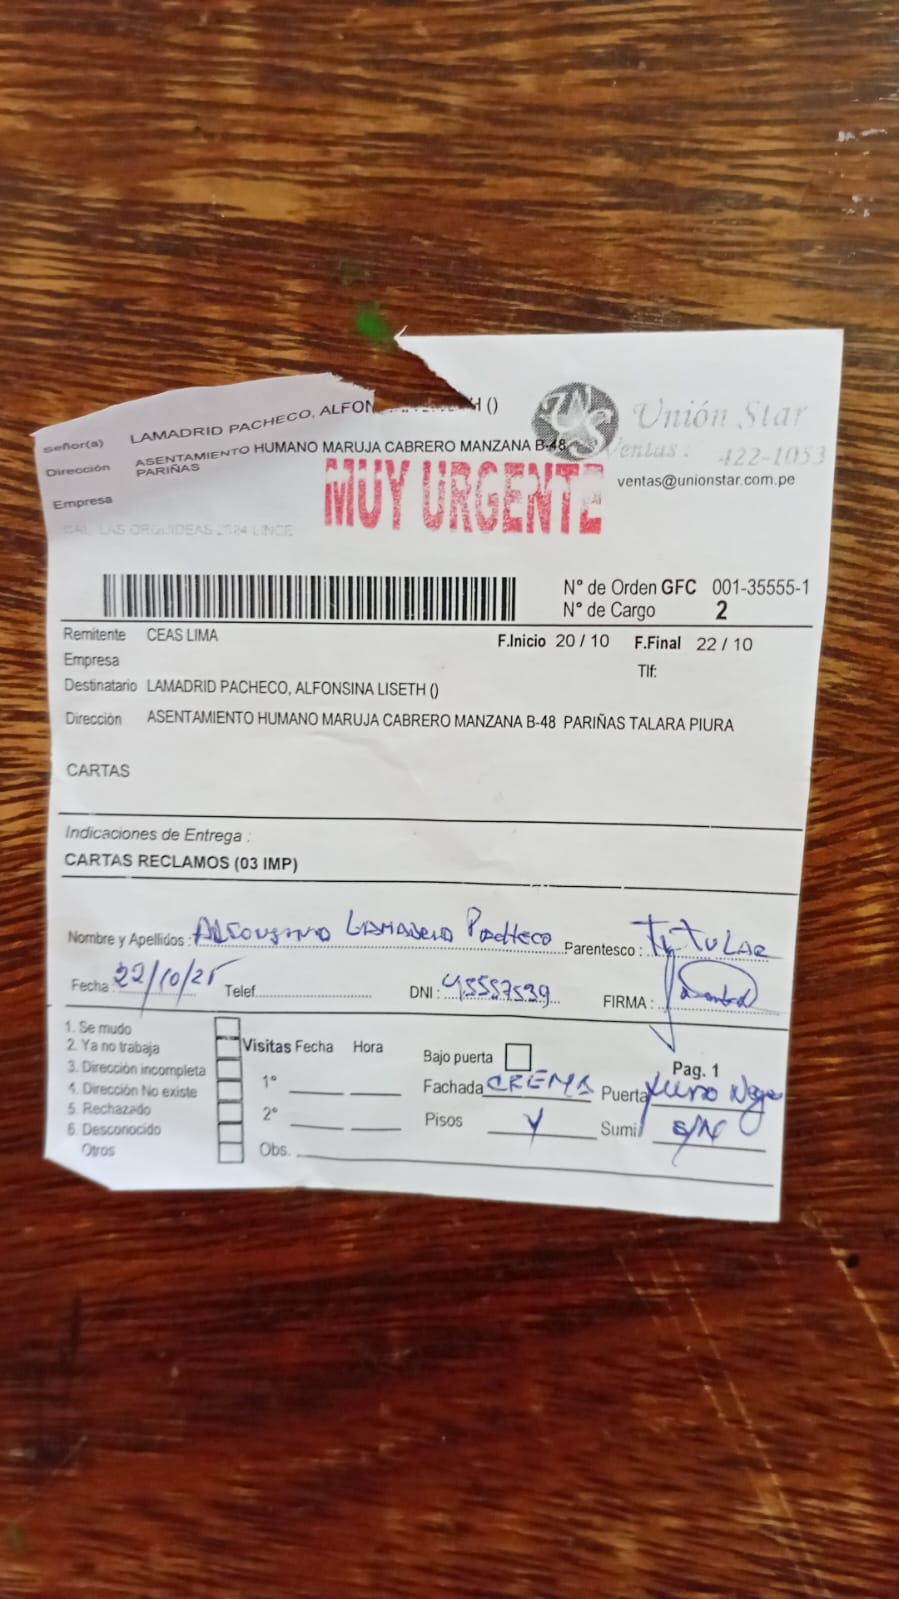 señor(a) LAMADRID PACHECO, ALFON H ()
Dirección ASENTAMIENTO HUMANO MARUJA CABRERO MANZANA B-48
PARIÑAS
Empresa
CAL. LAS ORQUIDEAS 2624 LINCE
MUY URGENTE
US
Unión Star
Ventas : 422-1053
ventas@unionstar.com.pe
N° de Orden GFC 001-35555-1
N° de Cargo 2
Remitente CEAS LIMA F.Inicio 20 / 10 F.Final 22 / 10
Empresa Tlf:
Destinatario LAMADRID PACHECO, ALFONSINA LISETH ()
Dirección ASENTAMIENTO HUMANO MARUJA CABRERO MANZANA B-48 PARIÑAS TALARA PIURA
CARTAS
Indicaciones de Entrega :
CARTAS RECLAMOS (03 IMP)
Nombre y Apellidos : Alfonsina Lamadrid Pacheco Parentesco : TITULAR
Fecha : 22/10/25 Telef. DNI : 45557539 FIRMA :
1. Se mudo
2. Ya no trabaja
3. Dirección incompleta
4. Dirección No existe
5. Rechazado
6. Desconocido
Otros
Visitas Fecha Hora
1°
2°
Obs.
Bajo puerta Pag. 1
Fachada CREMA Puerta
Pisos Sumi S/N